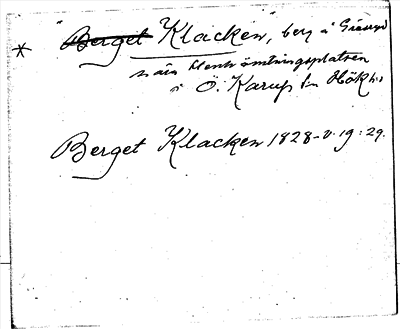 * "Berget Klacken", berg å Grevryd
nära stenkrömtningsplatsen
i Ö. Karup sn Hök hd
Berget Klacken 1828-v. 19:29.